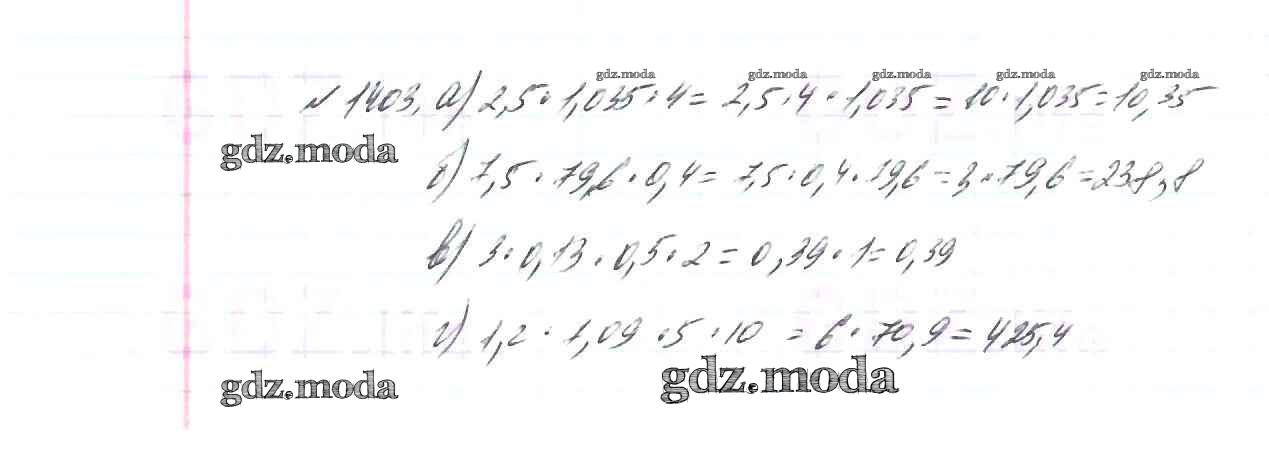 gdz.moda gdz.moda gdz.moda gdz.moda gdz.moda
№ 1403. а) 2,5·1,035·4= 2,5·4·1,035=10·1,035=10,35
gdz.moda
б) 7,5·79,6·0,4= 7,5·0,4·79,6=3·79,6=238,8
в) 3·0,13·0,5·2=0,39·1=0,39
г) 1,2·1,09·5·10 =6·70,9=425,4
gdz.moda
gdz.moda